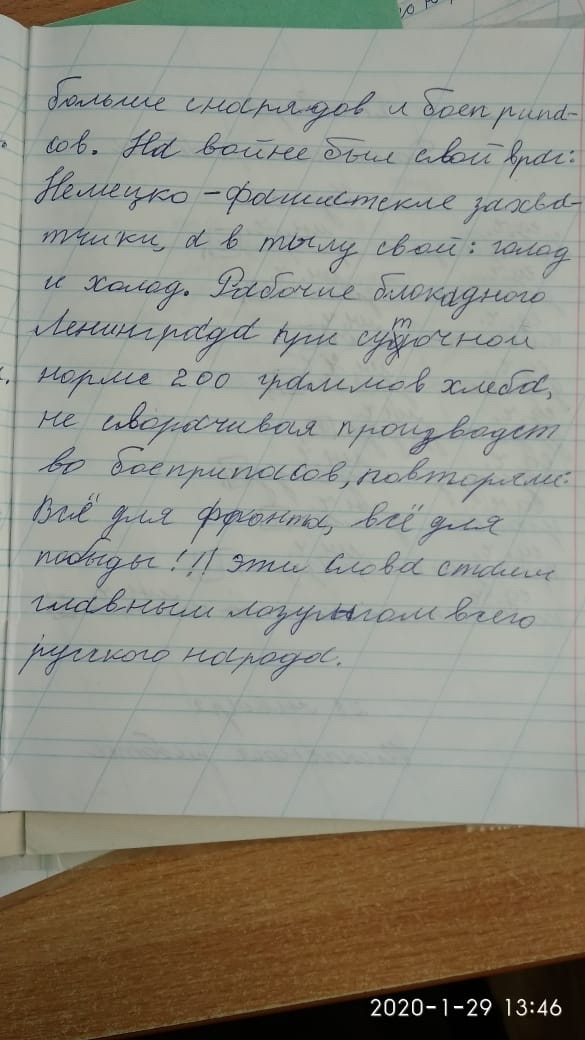 больше снарядов и боеприпа-
сов. На войне был свой враг:
Немецко-фашистские захва-
тчики, а в тылу свой: голод
и холод. Рабочие блокадного
Ленинграда при суточной
норме 200 граммов хлеба,
не сворачивая производст
во боеприпасов, повторяли:
Всё для фронта, всё для
победы!!! Эти слова стали
главным лозунгом всего
русского народа.
2020-1-29 13:46